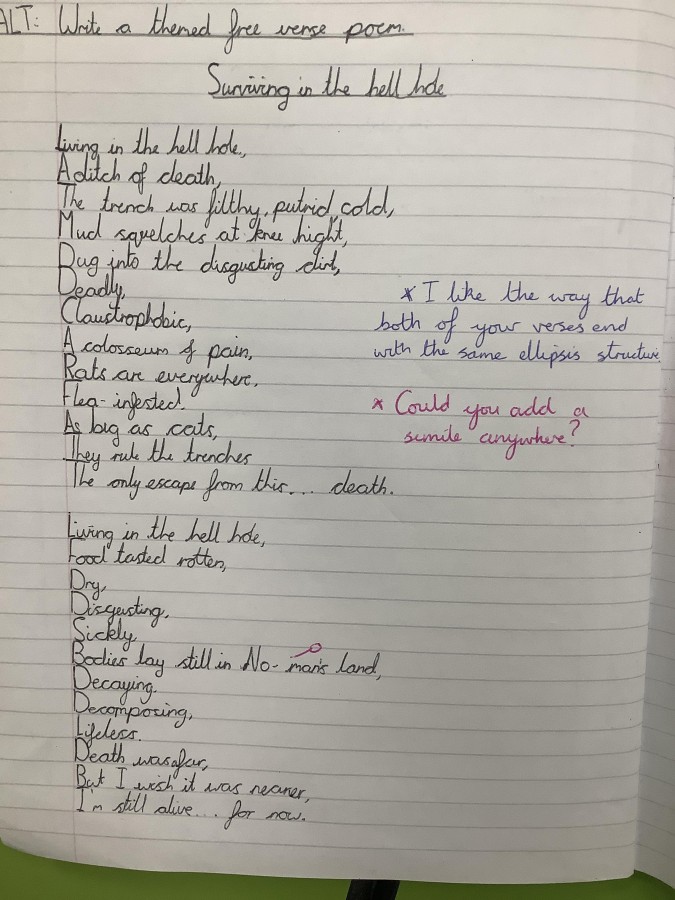 ALT: Write a themed free verse poem.
Surviving in the hell hole
Living in the hell hole,
A ditch of death,
The trench was filthy, putrid, cold,
Mud squelches at knee hight,
Dug into the disgusting dirt,
Deadly,
Claustrophobic,
A colosseum of pain,
Rats are everywhere,
Flea-infested.
As big as cats,
They rule the trenches
The only escape from this... death.
* I like the way that
both of your verses end
with the same ellipsis structure
* Could you add a
simile anywhere?
Living in the hell hole,
Food tasted rotten,
Dry,
Disgusting,
Sickly,
Bodies lay still in No-man's land,
Decaying.
Decomposing,
Lifeless.
Death was far,
But I wish it was nearer,
I'm still alive... for now.